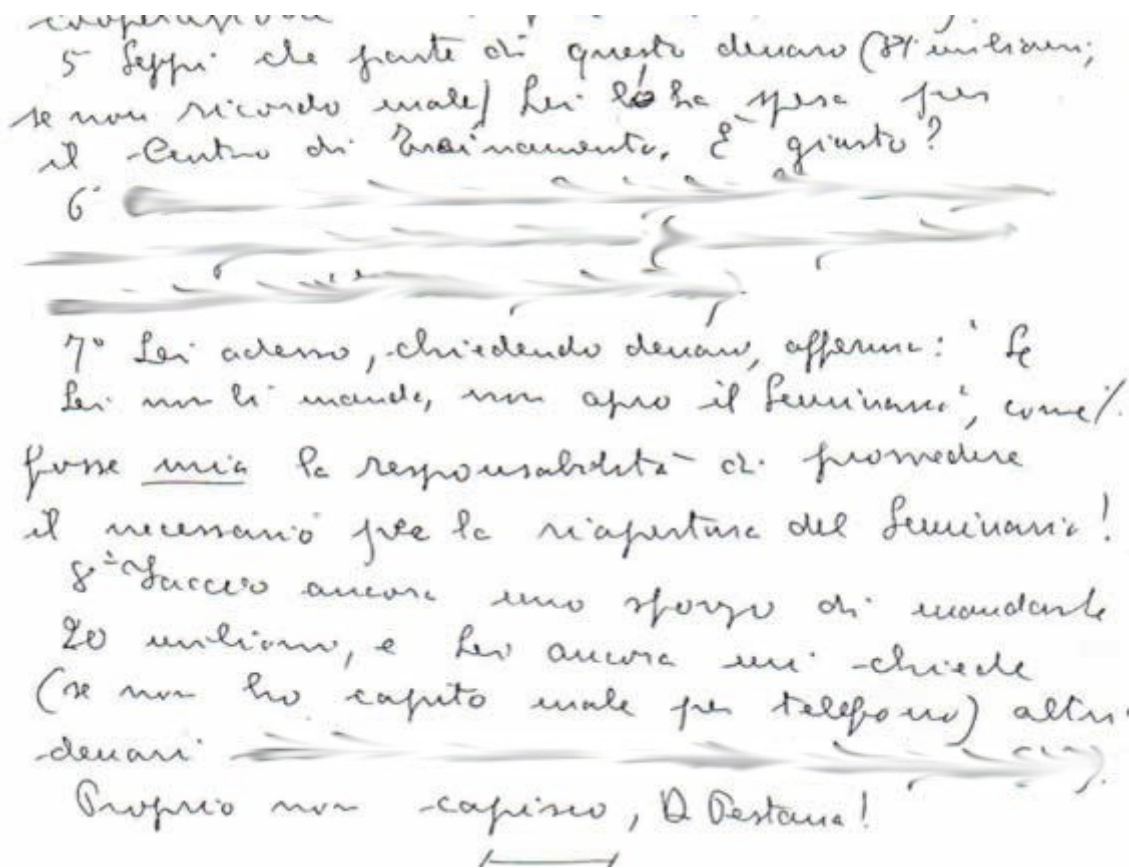 cooperazione
5 Seppi che parte di questo denaro (87 milioni,
se non ricordo male) Lei lo ha spesa per
il Centro di Trainamento. È giusto?
6°
7° Lei adesso, chiedendo denaro, afferma: "Se
Lei non li manda, non apro il Seminario", come
fosse mia la responsabilità di provvedere
il necessario per la riapertura del Seminario!
8° Faccio ancora uno sforzo di mandarle
20 milioni, e Lei ancora mi chiede
(se non ho capito male per telefono) altri
denari
Proprio non capisco, D Pestana!